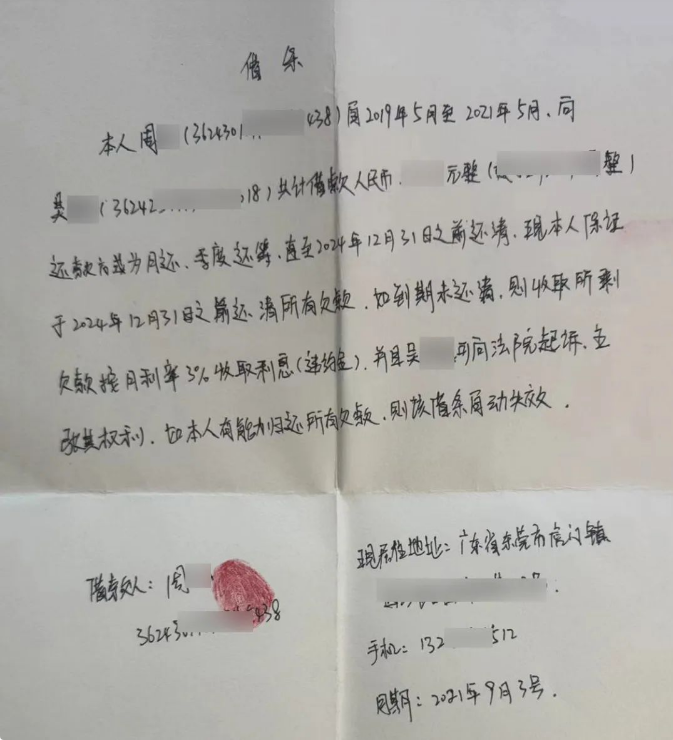 借条
本人周 (3624301 438)自2019年5月至2021年5月、向
吴 (36242 018)共计借款人民币 元整( 整)
还款方式为月还、季度还等、直至2024年12月31日之前还清、现本人保证
于2024年12月31日之前还清所有欠款、如到期未还清、则收取所剩
欠款按月利率3%收取利息(违约金)、并且吴 可向法院起诉、主
张其权利、如本人有能力归还所有欠款、则该借条自动失效。
现居住地址:广东省东莞市虎门镇
借款人:周
362430 438
手机:132 512
日期:2021年9月3号.